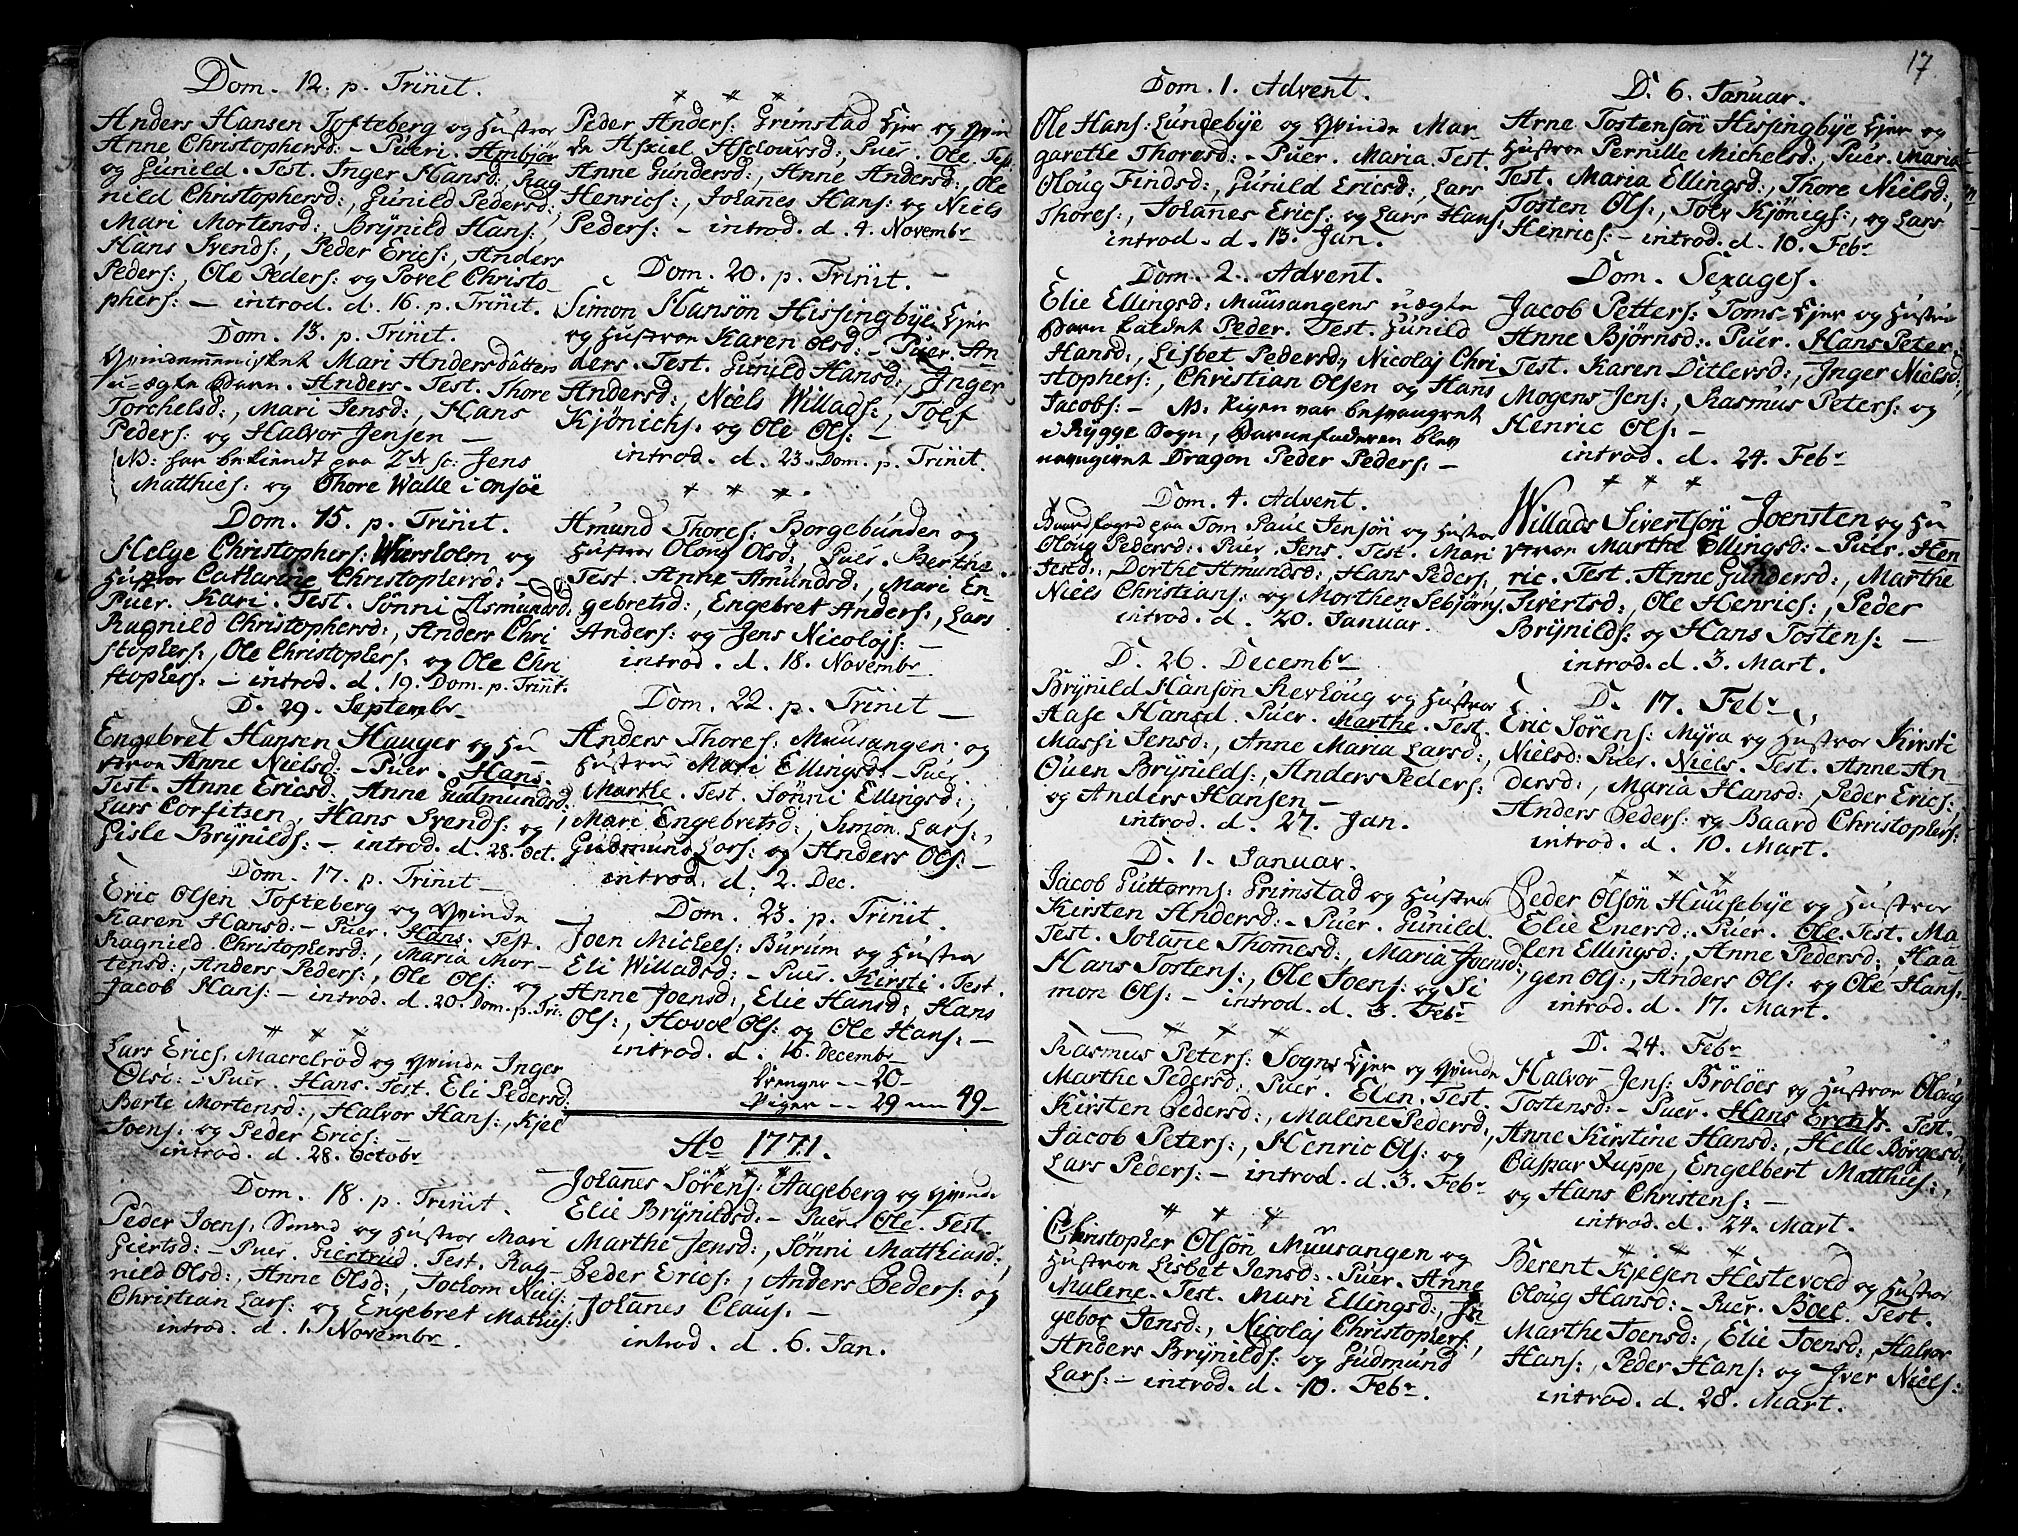 Dom. 12. p. Triñit.
Anders Hansen Tofteberg og Hustroe
Anne Christophersd: - Pueri. Ambjør
og Gunild. Test. Inger Hansd:, Rag
nild Christophersd:, Gunild Pedersd:,
Mari Mortensd:, Brÿnild Hans:,
Hans Svends:, Peder Erics:, Anders
Peders:, Ole Peders: og Povel Christo-
phers: - introd. d. 16. p. Triñit.
Dom. 13. p. Triñit.
Qvindemennisket Mari Andersdatters
u=ægte Barn. Anders. Test. Thore
Torchelsd:, Mari Jensd:, Hans
Peders: og Halvor Jensen -
NB: har bekiendt paa Jens
Matthies: og Thore Walle i Onsøe
Dom. 15. p. Triñit.
Helge Christophers: Wiersholm og
Hustroe Catharine Christophersd: -
Puer. Kari. Test. Sønni Asmundsd:
Ragnild Christophersd:, Anders Chri
stophers:, Ole Christophers: og Ole Chri
stophers: - introd. d. 19. Dom. p. Triñit.
D. 29. Septembr
Engebret Hansen Hauger og Hu
stroe Anne Nielsd: - Puer. Hans.
Test. Anne Ericsd. Anne Gudmundsd:
Lars Corfitzen, Hans Svends: og
Gisle Brÿnilds: - introd. d. 28. Oct.
Dom. 17. p. Triñit -
Eric Olsen Tofteberg og Qvinde
Karen Hansd: - Puer. Hans. Test.
Ragnild Christophersd:, Maria Mor-
tensd:, Anders Peders:, Ole Ols: og
Jacob Hans: - introd. d. 20. Dom. p. Tri.
* * *
Lars Erics. Macrelrød og Qvinde Inger
Olsd: - Puer. Hans. Test. Eli Pedersd:
Berte Mortensd:, Halvor Hans:, Kjel
Joens: og Peder Erics:
introd. d. 28. Octobr
Dom. 18. p. Triñit.
Peder Joens: Smed og Hustroe Mari
Giertsd: - Puer. Giertrud. Test. Rag-
nild Olsd:, Anne Olsd:, Jochom Niels:,
Christian Lars: og Engebret Mathies:
introd. d. 1. Novembr.
* * *
Peder Anders: Grimstad Ejer og Qvin
de Axiel Aslouvsd:, Puer. Ole. Test.
Anne Gundersd:, Anne Andersd:, Ole
Henrics:, Johanes Hans: og Niels
Peders: - introd. d. 4. Novembr
Dom. 20. p. Triñit. -
Simon Hansøn Hissingbÿe Ejer
og Hustroe Karen Olsd: - Puer. An
ders. Test. Gunild Hansd:, Inger
Andersd:, Niels Willads:, Tolf
Kjønichs: og Ole Ols: -
introd. d. 23. Dom. p. Triñit.
* * *
Amund Thores: Borgebunden og
Hustroe Oloug Olsd:, Puer. Berthe.
Test. Anne Amundsd:, Mari En-
gebretsd:, Engebret Anders:, Lars
Anders: og Jens Nicolojs: -
introd. d. 18. Novembr
Dom. 22. p. Triñit -
Anders Thores: Muusangen og
Hustroe Mari Ellingsd: - Puer.
Marthe. Test. Sønni Ellingsd:,
Mari Engebretsd:, Simon Lars:,
Gudmund Lars: og Anders Ols: -
introd. d. 2. Dec.
Dom. 23. p. Triñit.
Joen Michels: Burum og Hustroe
Eli Willadsd: - Puer. Kirsti. Test.
Anne Joensd:, Elie Hansd:, Hans
Ols:, Hovol Ols: og Ole Hans: -
introd. d. 16. Decembr
Drenger -- 20 -
Piger -- 29 — 49 -
Ao 1771.
* * *
Johanes Sørens: Aageberg og Qvinde
Elie Brÿnildsd: - Puer. Ole. Test.
Marthe Jensd:, Sønni Matthiasd:,
Peder Erics:, Anders Peders: og
Johanes Claus: -
introd. d. 6. Jan.
Dom. 1. Advent.
Ole Hans: Lundebÿe og Qvinde Mar
garethe Thoresd: - Puer. Maria. Test.
Oloug Findsd:, Gunild Ericsd:, Lars
Thores:, Johanes Erics: og Lars Hans:
introd. d. 13. Jan.
Dom. 2. Advent.
Elie Ellingsd: Muusangens uægte
Barn kaldet Peder. Test. Gunild
Hansd:, Lisbet Pedersd:, Nicolaj Chri
stophers:, Christian Olsen og Hans
Jacobs: - NB. Pigen var besvangret
i Rÿgge Sogn, Barnefaderen blev
navngivet Dragon Peder Peders: -
Dom. 4. Advent.
Baardfogd paa Tom Paul Jensøn og Hustroe
Oloug Pedersd: - Puer. Jens. Test. Mari
Jensd:, Dorthe Amundsd:, Hans Peders:,
Niels Christians: og Morthen Sebjørns:
introd. d. 20. Januar.
D. 26. Decembr
Brÿnild Hansøn Revhoug og Hustroe
Aase Hansd. Puer. Marthe. Test.
Massi Jensd:, Anne Maria Larsd:,
Ouen Brÿnilds:, Anders Peders:
og Anders Hansen -
introd. d. 27. Jan.
D. 1. Januar.
Jacob Guttorms: Grimstad og Hustroe
Kirsten Andersd: - Puer. Gunild.
Test. Johane Thomesd:, Maria Joensd:,
Hans Tostens:, Ole Joens: og Si
mon Ols: - introd. d. 3. Febr
* * *
Rasmus Peters: Sogns Ejer og Qvinde
Marthe Pedersd: Puer. Elen. Test.
Kirsten Pedersd:, Malene Pedersd:,
Jacob Peters:, Henric Ols: og
Lars Peders: - introd. d. 3. Febr
* * *
Christopher Olsøn Muusangen og
Hustroe Lisbet Jensd: - Puer. Anne
Malene. Test. Mari Ellingsd:, In
gebor Jensd:, Nicolaj Christophers:,
Anders Brÿnilds: og Gudmund
Lars: - introd. d. 10. Febr.
17
D. 6. Januar.
Arne Tostensøn Hissingbÿe Ejer og
Hustroe Pernille Michelsd:, Puer. Maria
Test. Maria Ellingsd:, Thore Nielsd:,
Tosten Ols:, Tolv Kjønigs:, og Lars
Henrics: - introd. d. 10. Febr
Dom. Sexages.
Jacob Petters: Toms- Ejer og Hustroe
Anne Bjørnsd: - Puer. Hans Peter.
Test. Karen Ditlevsd:, Inger Nielsd:,
Mogens Jens:, Rasmus Peters: og
Henric Ols: -
introd. d. 24. Febr
* * *
Willads Sivertsøn Joensten og Hu
stroe Marthe Ellingsd: - Puer. Hen
ric. Test. Anne Gundersd:, Marthe
Sivertsd:, Ole Henrics:, Peder
Brÿnilds: og Hans Tostens: -
introd. d. 3. Mart.
D. 17. Febr
Eric Sørens: Mÿra og Hustroe Kirsti
Nielsd: Puer. Niels. Test. Anne An-
dersd:, Maria Hansd:, Peder Erics:,
Anders Peders: og Baard Christophers:
introd. d. 10. Mart.
* * *
Peder Olsøn Huusebÿe og Hustroe
Elie Enersd: - Puer. Ole. Test. Ma-
len Ellingsd:, Anne Pedersd:, Haa
gen Ols:, Anders Ols: og Ole Hans: -
introd. d. 17. Mart.
D. 24. Febr
Halvor Jens: Brøløes og Hustroe Oloug
Tostensd: - Puer. Hans Erents. Test.
Anne Kirstine Hansd:, Helle Børgesd:,
Caspar Ruppe, Engelbert Matthies:,
og Hans Christens: -
introd. d. 24. Mart.
* * *
Berent Kjelsen Hestevold og Hustroe
Oloug Hansd: - Puer. Boel. Test.
Marthe Joensd:, Elie Joensd:, Halvor
Hans:, Peder Hans: og Iver Niels:
introd. d. 28. Mart.